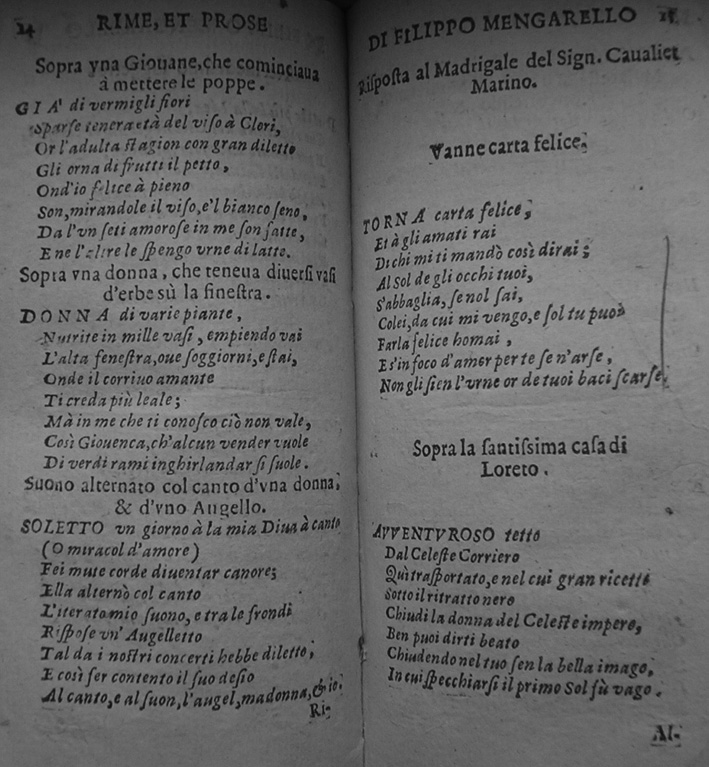 24 RIME, ET PROSE
Sopra vna Giouane, che cominciaua
à mettere le poppe.
GIA' di vermigli fiori
Sparſe tenera età del viſo à Clori,
Or l'adulta ſtagion con gran diletto
Gli orna di frutti il petto,
Ond'io felice à pieno
Son, mirandole il viſo, e'l bianco ſeno,
Da l'vn ſeti amoroſe in me ſon fatte,
E ne l'altre le ſpengo vrne di latte.
Sopra vna donna, che teneua diuerſi vaſi
d'erbe sù la fineſtra.
DONNA di varie piante,
Nutrite in mille vaſi, empiendo vai
L'alta feneſtra, oue ſoggiorni, e ſtai,
Onde il corriuo amante
Ti creda più leale;
Mà in me che ti conoſco ciò non vale,
Così Giouenca, ch'alcun vender vuole
Di verdi rami inghirlandar ſi ſuole.
Suono alternato col canto d'vna donna,
& d'vno Augello.
SOLETTO vn giorno à la mia Diua à canto
(O miracol d'amore)
Fei mute corde diuentar canore;
Ella alternò col canto
L'iterato mio ſuono, e tra le frondi
Riſpoſe vn' Augelletto
Tal da i noſtri concerti hebbe diletto,
E così fer contento il ſuo deſio
Al canto, e al ſuon, l'augel, madonna, & io.
Ri-
DI FILIPPO MENGARELLO 25
Riſpoſta al Madrigale del Sign. Caualier
Marino.
Vanne carta felice.
TORNA carta felice,
Et à gli amati rai
Di chi mi ti mandò così dirai;
Al Sol de gli occhi tuoi,
S'abbaglia, ſe nol ſai,
Colei, da cui mi vengo, e ſol tu puoi
Farla felice homai,
E s'in foco d'amor per te ſe n'arſe,
Non gli ſien l'vrne or de tuoi baci ſcarſe.
Sopra la ſantiſſima caſa di
Loreto.
AVVENTVROSO tetto
Dal Celeſte Corriero
Quì traſportato, e nel cui gran ricetto
Sotto il ritratto nero
Chiudi la donna del Celeſte impero,
Ben puoi dirti beato
Chiudendo nel tuo ſen la bella imago,
In cui ſpecchiarſi il primo Sol fù vago.
Al-